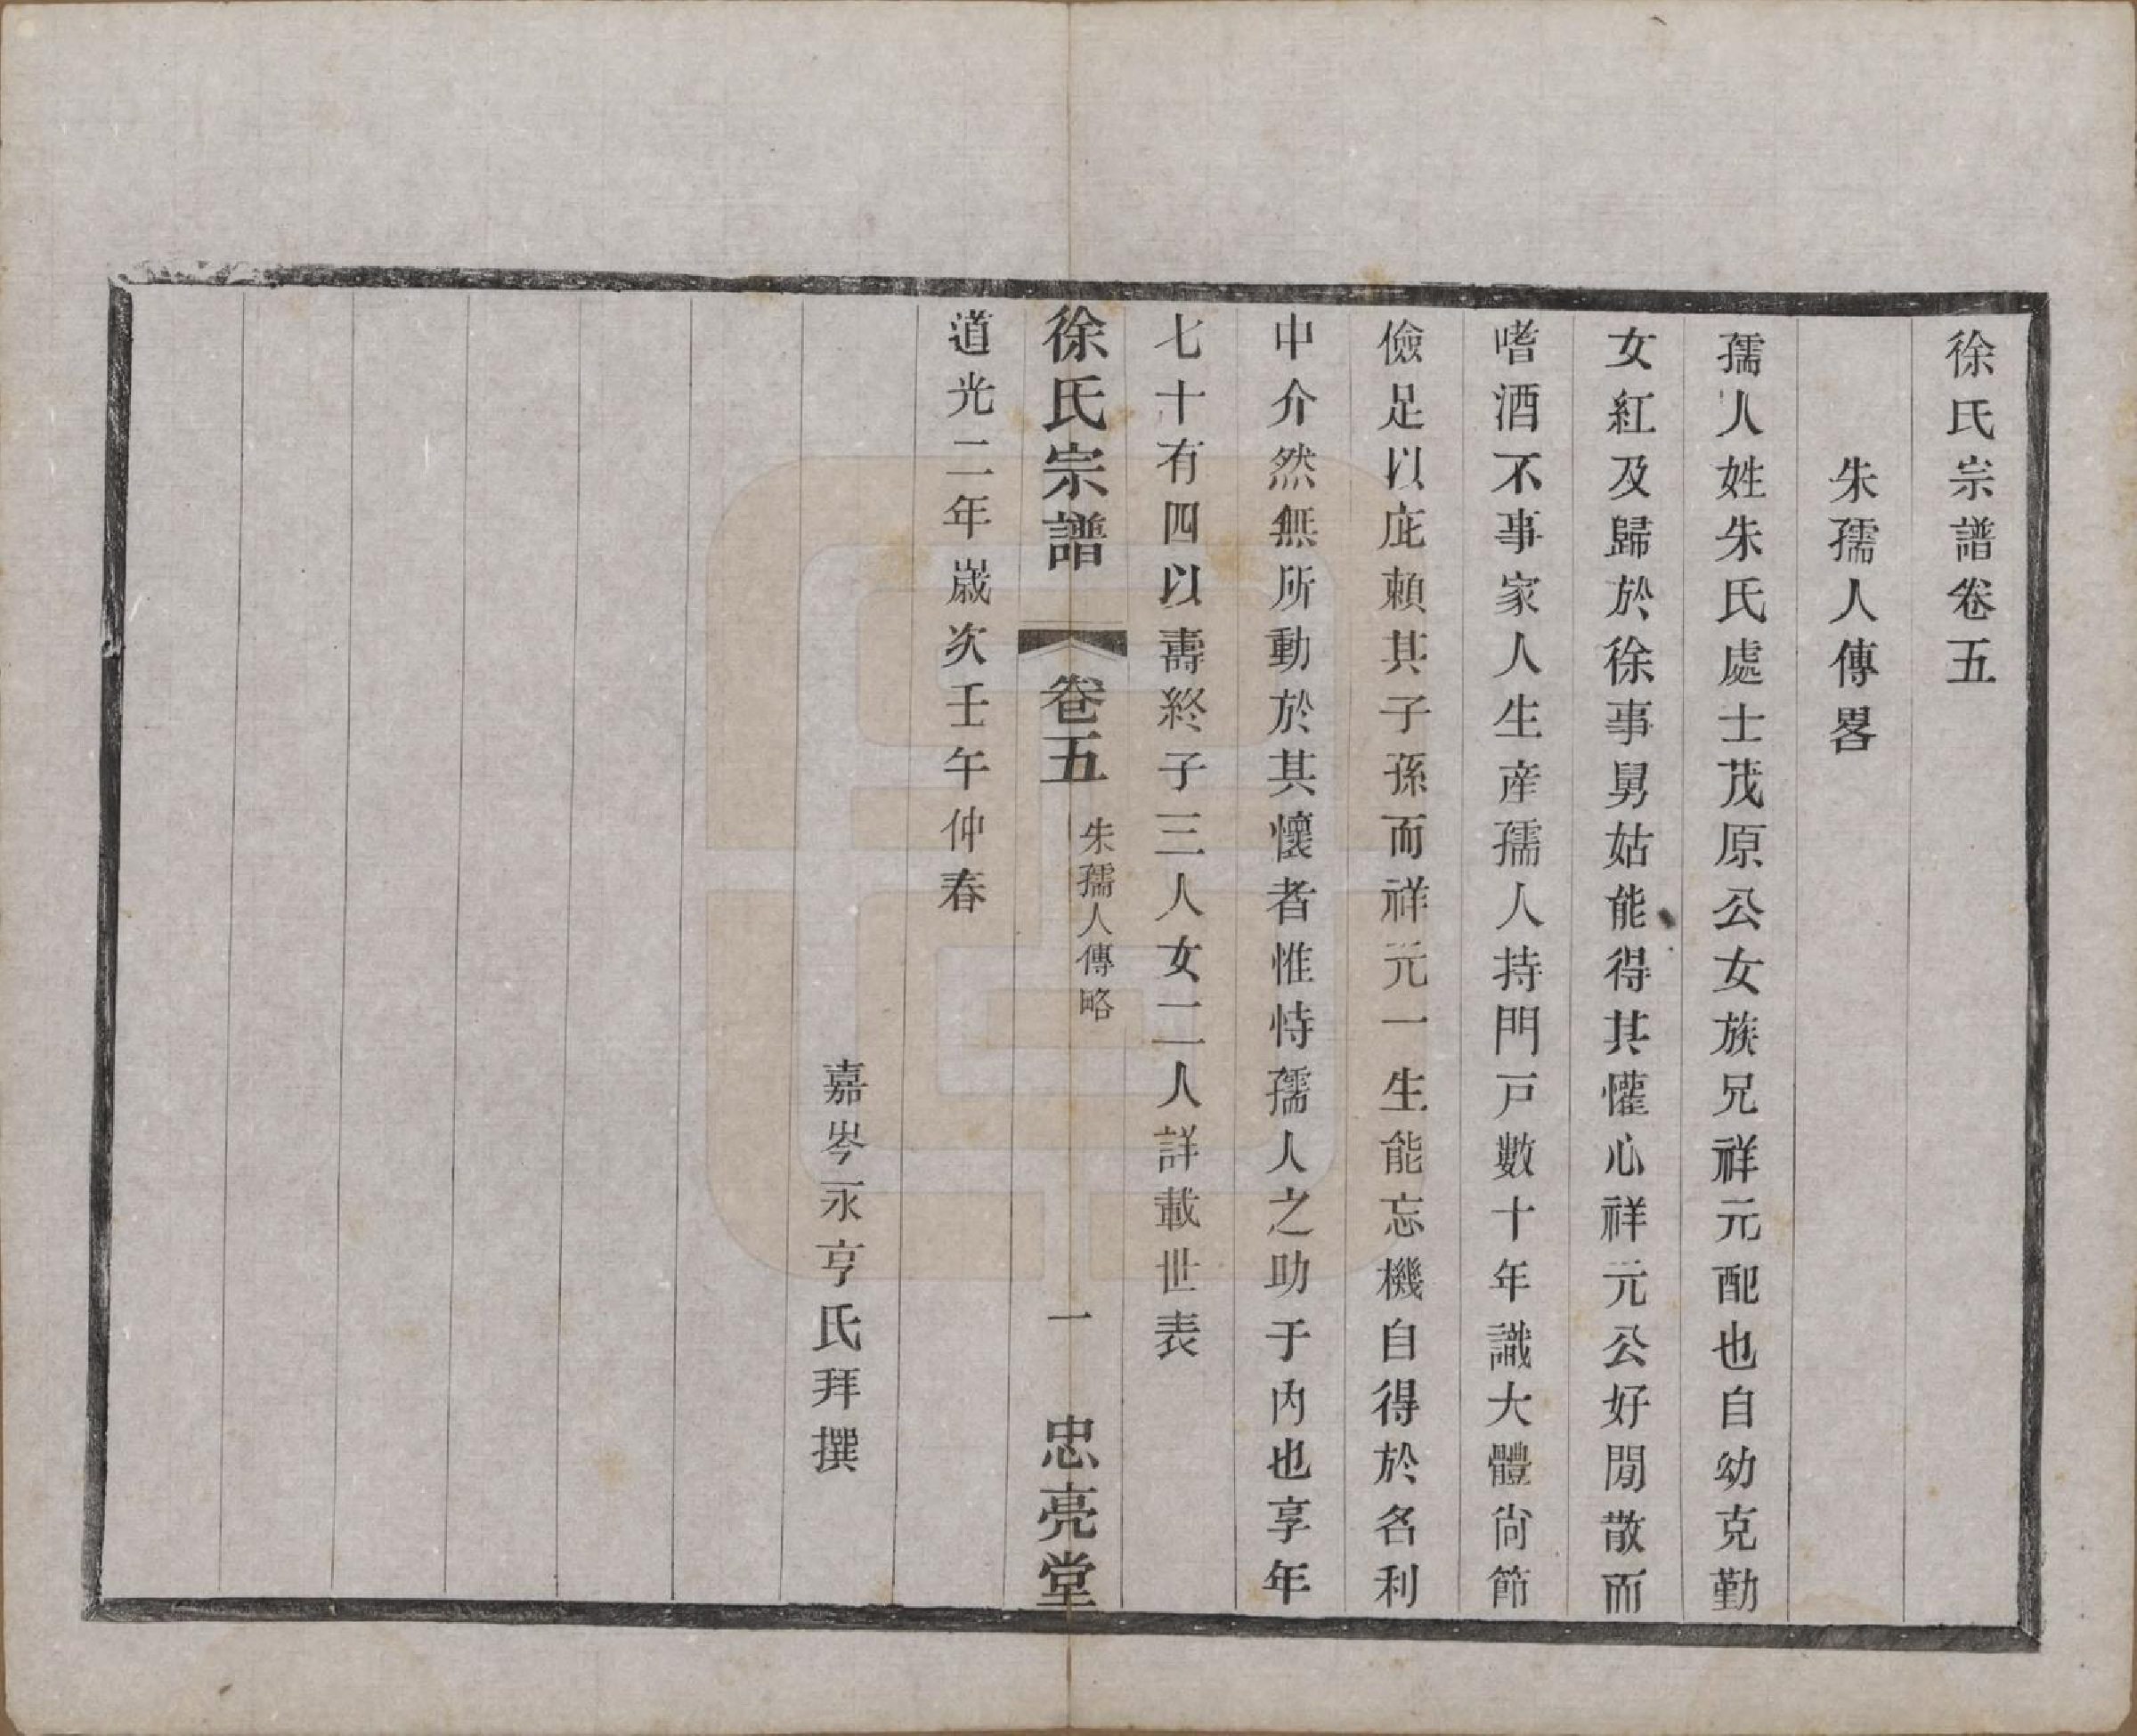 徐氏宗譜卷五
朱孺人傳畧
孺人姓朱氏處士茂原公女族兄祥元配也自幼克勤
女紅及歸於徐事舅姑能得其懽心祥元公好閒散而
嗜酒不事家人生產孺人持門戶數十年識大體尙節
儉足以庇賴其子孫而祥元一生能忘機自得於名利
中介然無所動於其懷者惟恃孺人之助于內也享年
七十有四以壽終子三人女二人詳載世表
徐氏宗譜 卷五 朱孺人傳略 一 忠亮堂
道光二年嵗次壬午仲春
嘉岑永亨氏拜撰